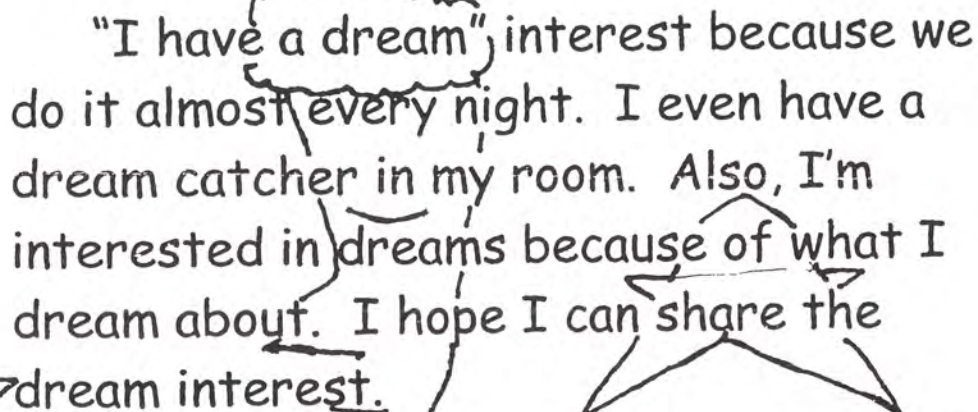 "I have a dream" interest because we
do it almost every night. I even have a
dream catcher in my room. Also, I'm
interested in dreams because of what I
dream about. I hope I can share the
dream interest.